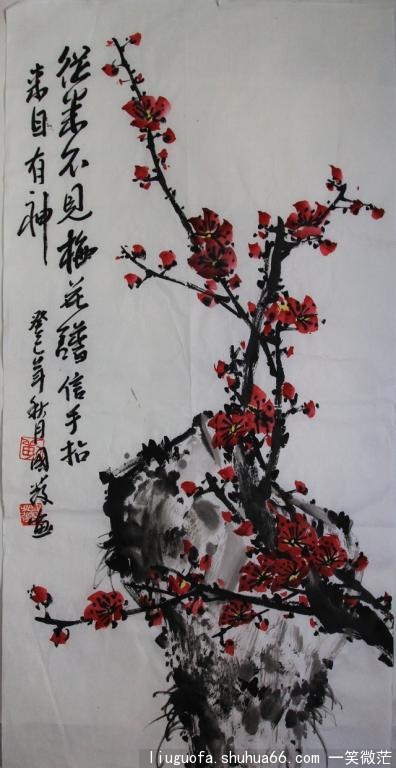 從来不見梅花譜信手拈
来自有神
癸巳年秋月國發画
liuguofa.shuhua66.com 一笑微茫